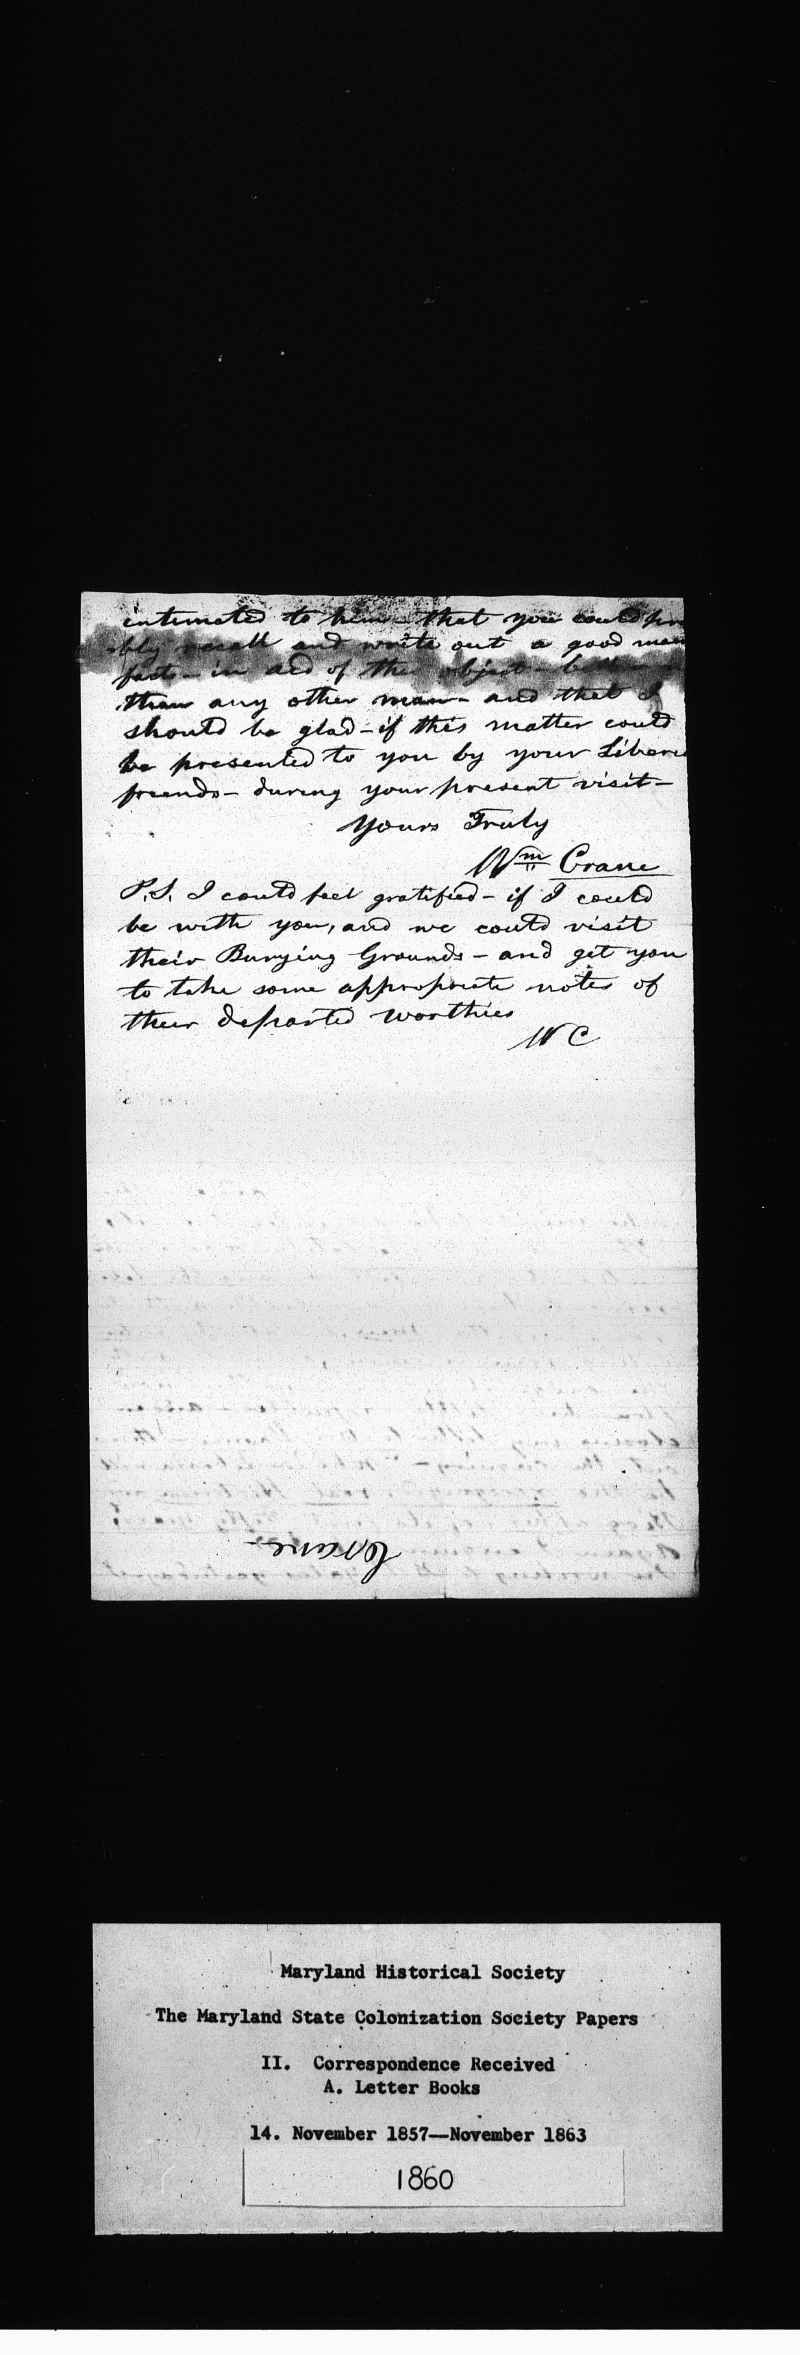 intimated to him - that you could pro
-bly recall and write out a good many
facts - in aid of the object -
than any other man - and that I
should be glad - if this matter could
be presented to you by your Liberia
friends - during your present visit -
Yours Truly
Wm Crane
P.S. I could feel gratified - if I could
be with you, and we could visit
their Burying Grounds - and get you
to take some appropriate notes of
their departed worthies
W C
Crane
Maryland Historical Society
The Maryland State Colonization Society Papers
II. Correspondence Received
A. Letter Books
14. November 1857—November 1863
1860